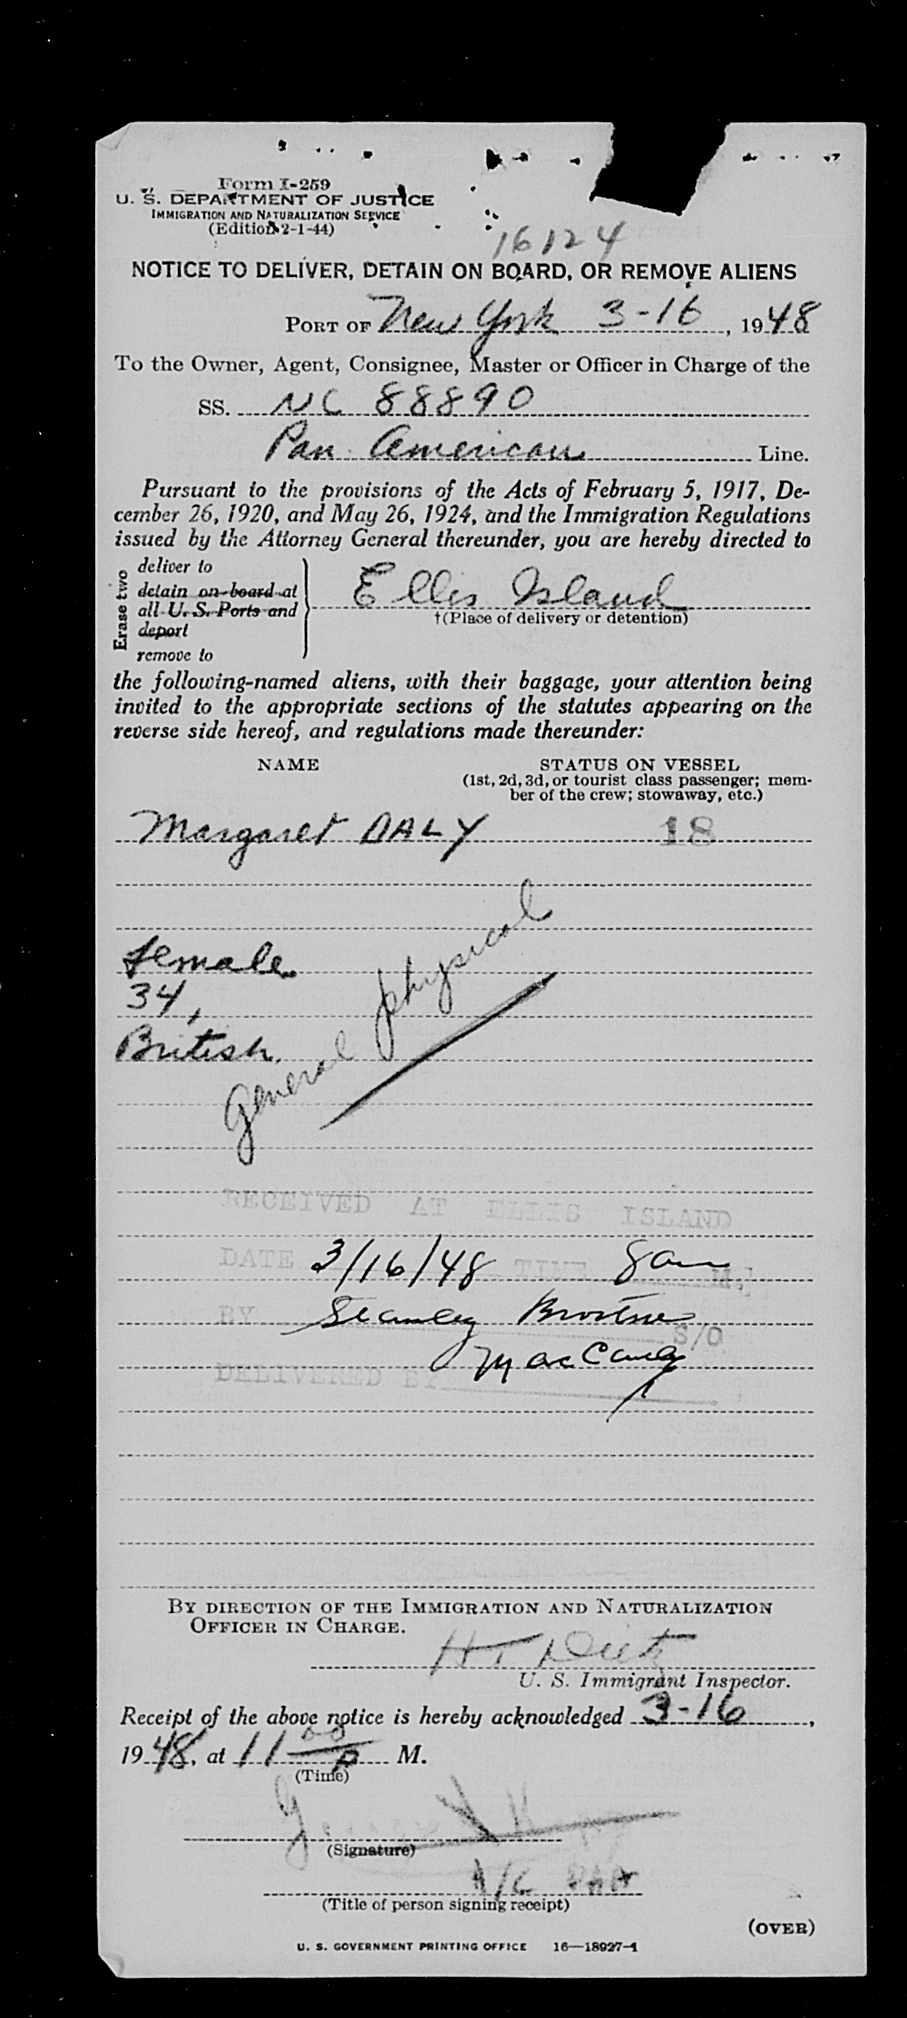 Form I-259
U. S. DEPARTMENT OF JUSTICE
IMMIGRATION AND NATURALIZATION SERVICE
(Edition 2-1-44)
16124
NOTICE TO DELIVER, DETAIN ON BOARD, OR REMOVE ALIENS
PORT OF New York 3-16, 1948
To the Owner, Agent, Consignee, Master or Officer in Charge of the
SS. NC 88890
Pan American Line.
Pursuant to the provisions of the Acts of February 5, 1917, De-
cember 26, 1920, and May 26, 1924, and the Immigration Regulations
issued by the Attorney General thereunder, you are hereby directed to
Erase two
deliver to
detain on board at
all U. S. Ports and
deport
remove to
Ellis Island
†(Place of delivery or detention)
the following-named aliens, with their baggage, your attention being
invited to the appropriate sections of the statutes appearing on the
reverse side hereof, and regulations made thereunder:
NAME STATUS ON VESSEL
(1st, 2d, 3d, or tourist class passenger; mem-
ber of the crew; stowaway, etc.)
Margaret DALY 18
female
34,
British.
General physical
RECEIVED AT ELLIS ISLAND
DATE 3/16/48 TIME 8am M.
BY Stanley S/O
DELIVERED BY
BY DIRECTION OF THE IMMIGRATION AND NATURALIZATION
OFFICER IN CHARGE.
H T Dietz
U. S. Immigrant Inspector.
Receipt of the above notice is hereby acknowledged 3-16,
1948, at 11 00 p M.
(Time)
(Signature)
A/C PAA
(Title of person signing receipt)
(OVER)
U. S. GOVERNMENT PRINTING OFFICE 16—18927-1